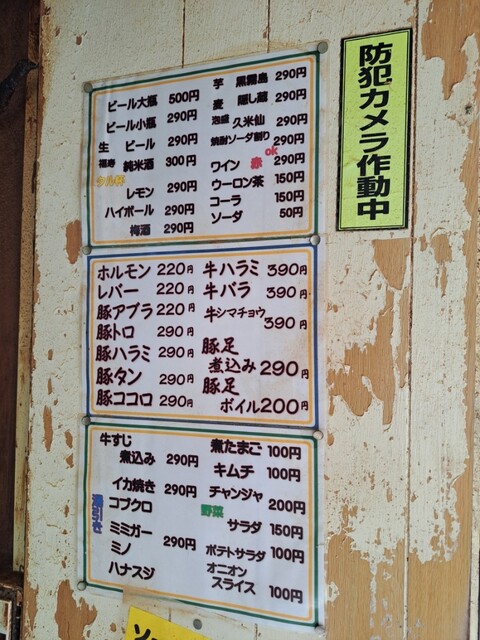 ビール大瓶 500円
ビール小瓶 290円
生 ビール 290円
福寿 純米酒 300円
タル杯
レモン 290円
ハイボール 290円
梅酒 290円
芋 黒霧島 290円
麦 隠し蔵 290円
泡盛 久米仙 290円
焼酎ソーダ割り 290円
OK
ワイン 赤 290円
ウーロン茶 150円
コーラ 150円
ソーダ 50円
ホルモン 220円
レバー 220円
豚アブラ 220円
豚トロ 290円
豚ハラミ 290円
豚タン 290円
豚ココロ 290円
牛ハラミ 390円
牛バラ 390円
牛シマチョウ
390円
豚足
煮込み 290円
豚足
ボイル 200円
牛すじ
煮込み 290円
イカ焼き 290円
湯引き
コブクロ
ミミガー
ミノ 290円
ハナスジ
煮たまご 100円
キムチ 100円
チャンジャ
200円
野菜
サラダ 150円
ポテトサラダ 100円
オニオン
スライス 100円
防犯カメラ作動中